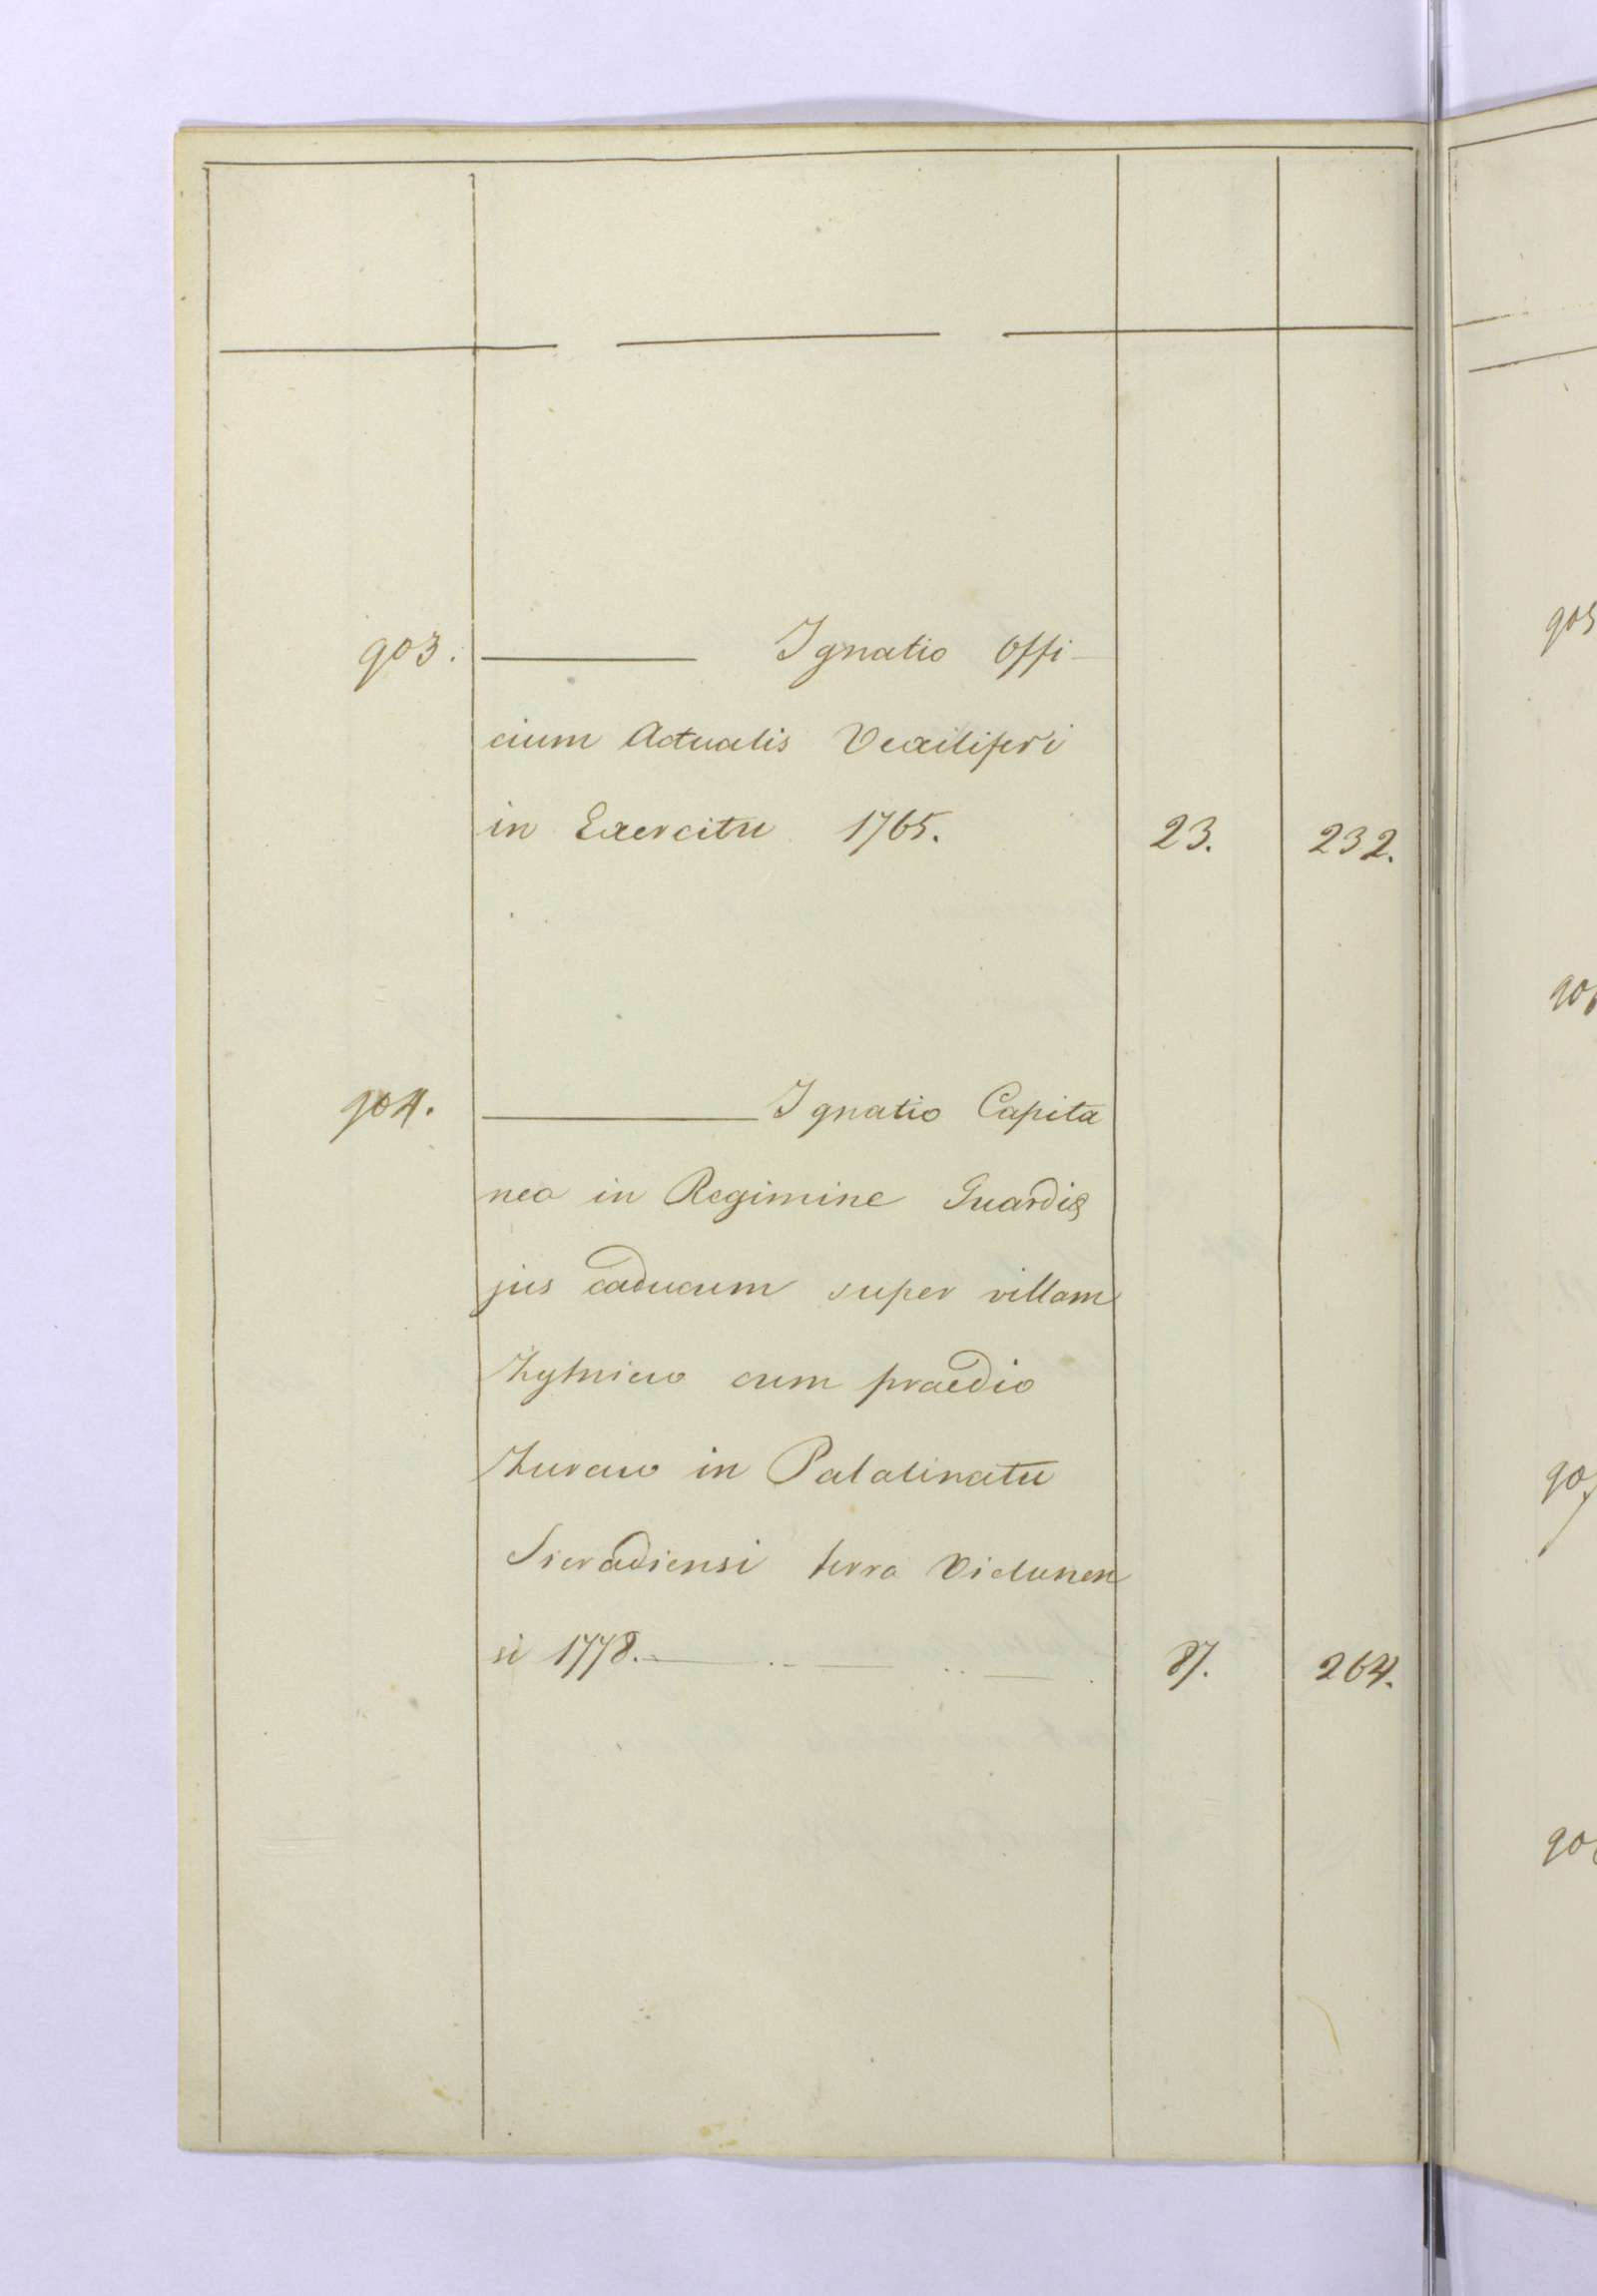 903. ——— Ignatio Offi-
cium Actualis Vexiliferi
in Exercitu 1765. 23. 232.
904. ——— Ignatio Capita
neo in Regimine Guardię
jus caducum super villam
Zytniew cum praedio
Zuraw in Palatinatu
Sieradiensi terra Vielunen
si 1778. 87. 264.
905
90
90
90